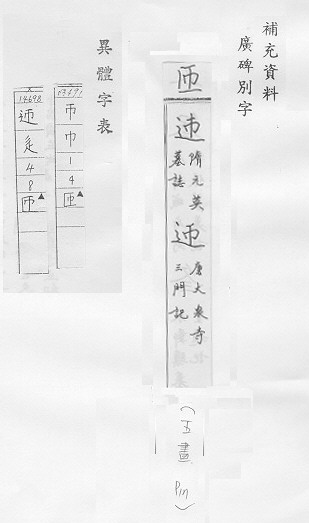 補充資料
廣碑別字
匝
隋元英
墓誌
迊
唐大泉寺
三門記
(五畫 Pin)
異體字表
03691
帀
巾
1
4
匝▲
14698
迊
辵
4
8
匝▲